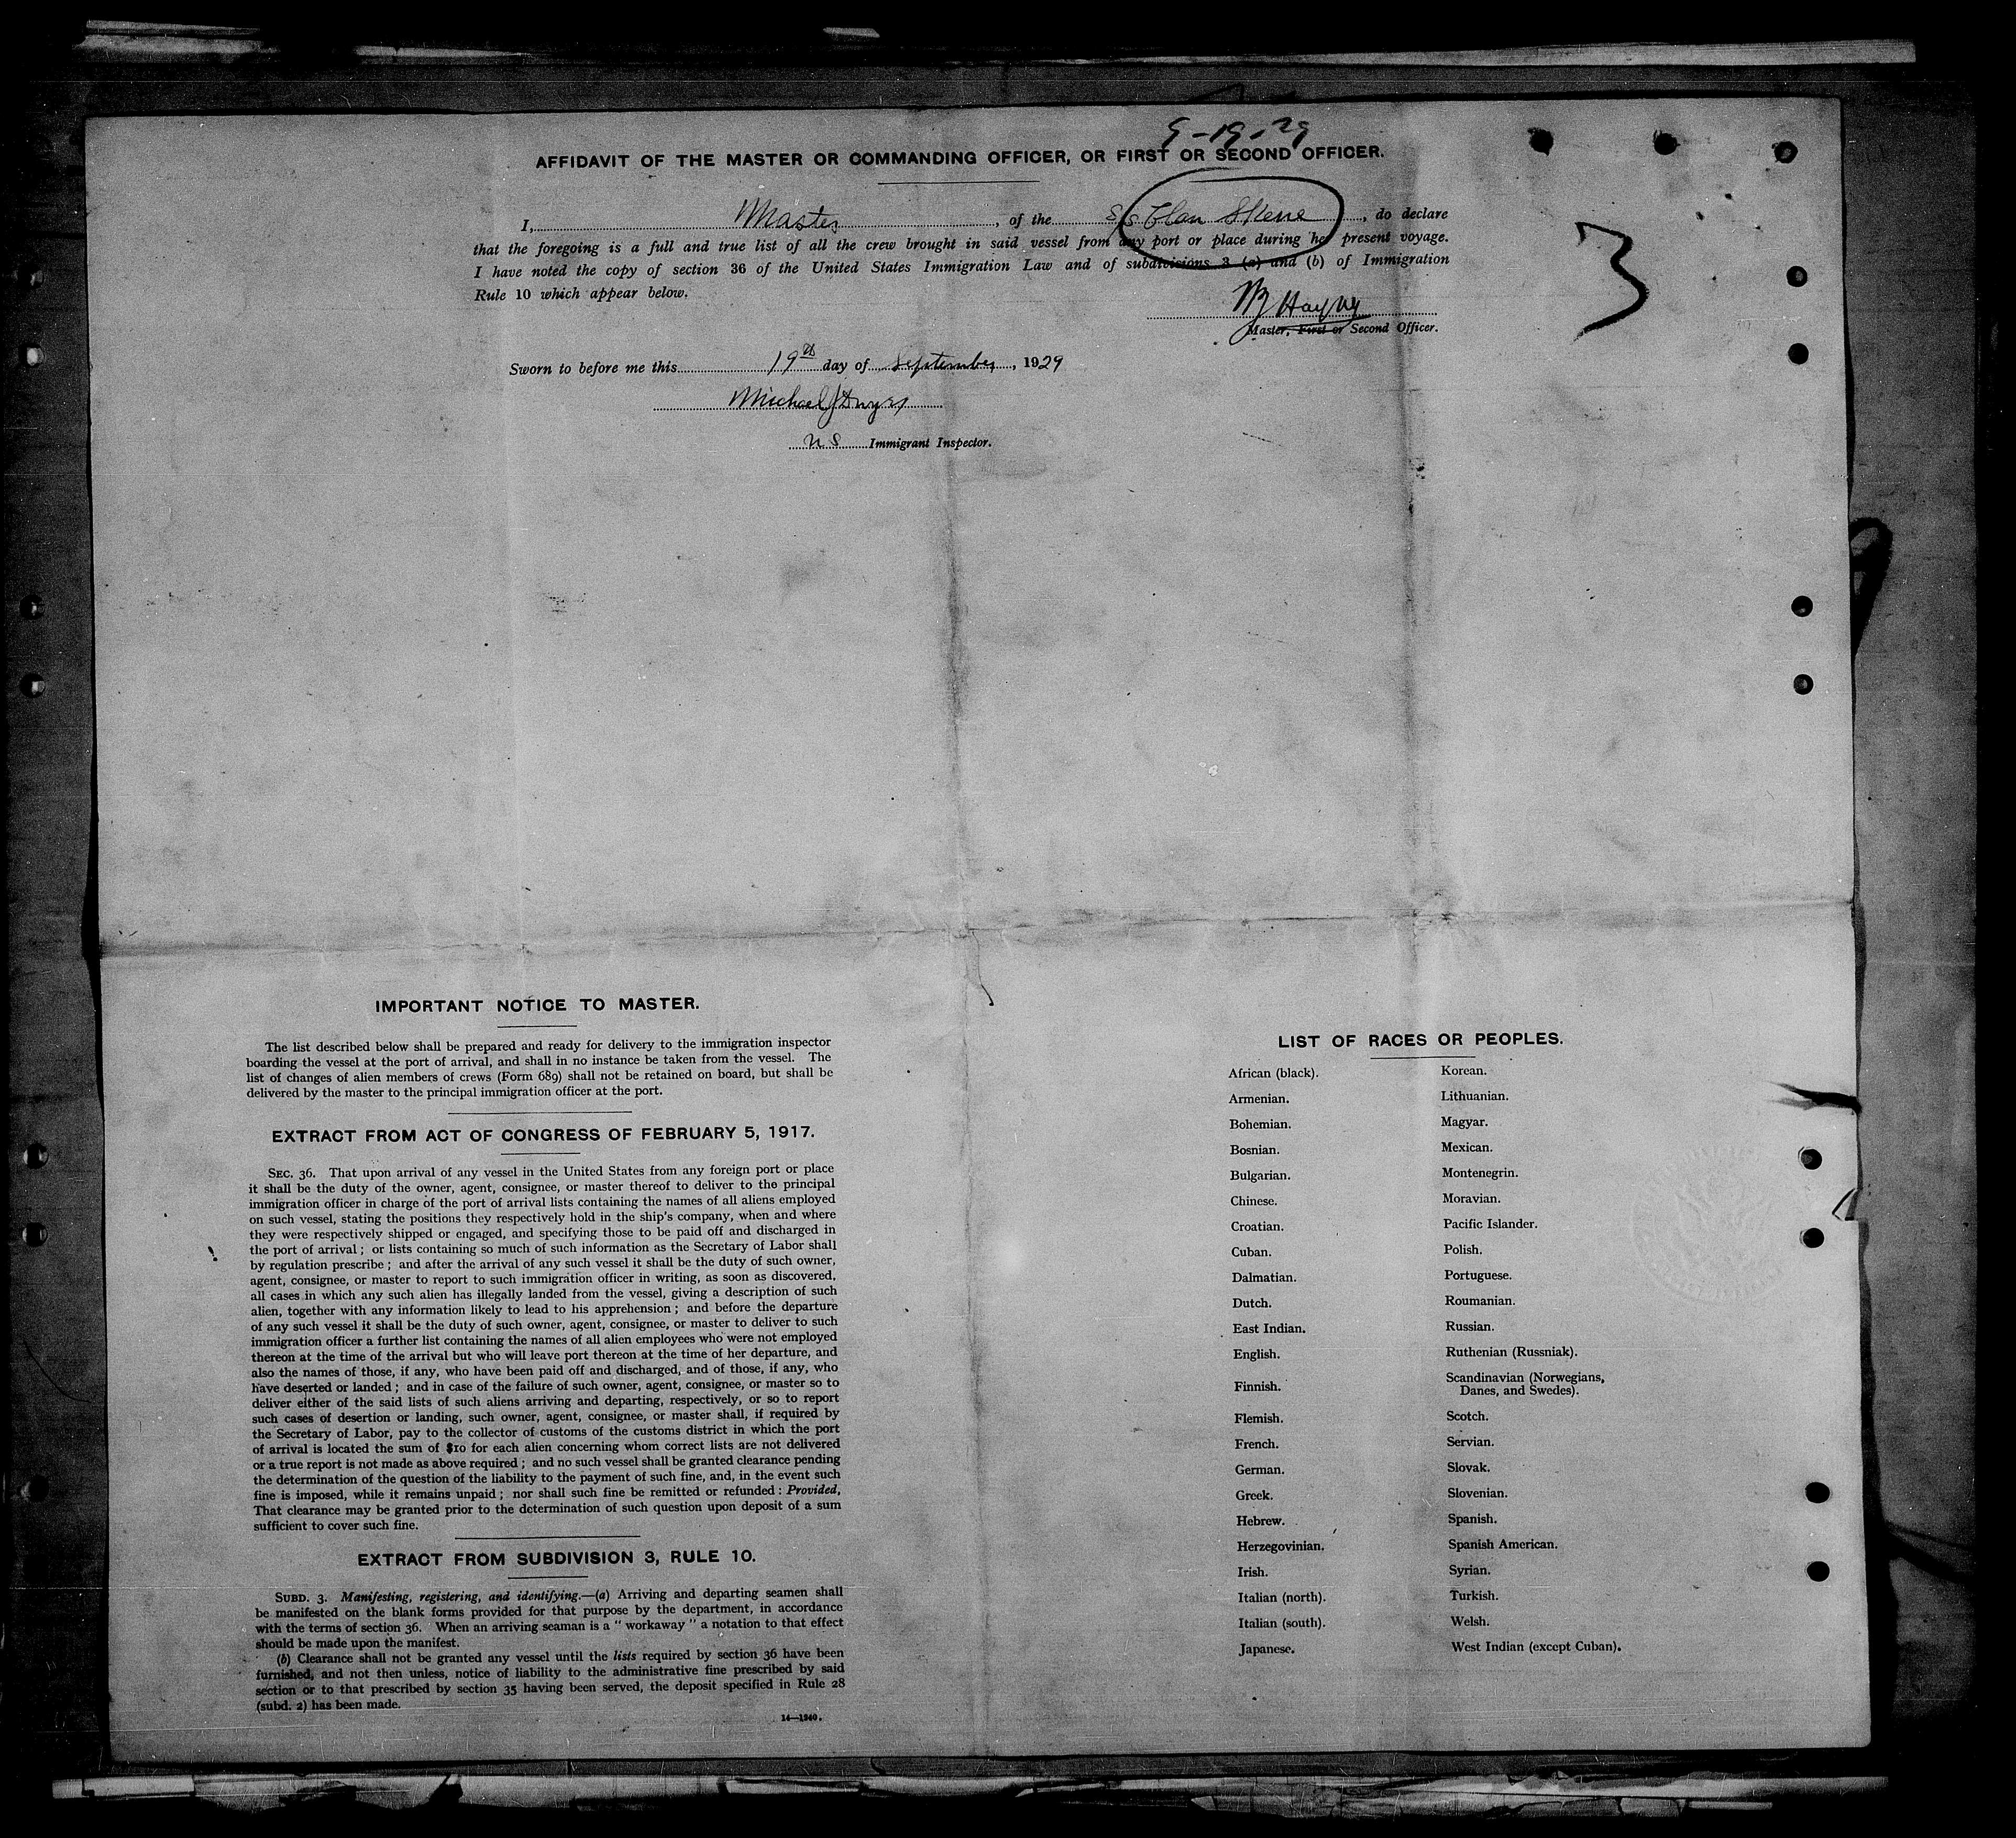 9-19-29
AFFIDAVIT OF THE MASTER OR COMMANDING OFFICER, OR FIRST OR SECOND OFFICER.
I, Master, of the S/S Clan Skene, do declare
that the foregoing is a full and true list of all the crew brought in said vessel from any port or place during her present voyage.
I have noted the copy of section 36 of the United States Immigration Law and of subdivisions 3 (a) and (b) of Immigration
Rule 10 which appear below.
3
Master, First or Second Officer.
Sworn to before me this 19th day of September, 1929
Michael J Dwyer
U S Immigrant Inspector.
IMPORTANT NOTICE TO MASTER.
The list described below shall be prepared and ready for delivery to the immigration inspector
boarding the vessel at the port of arrival, and shall in no instance be taken from the vessel. The
list of changes of alien members of crews (Form 689) shall not be retained on board, but shall be
delivered by the master to the principal immigration officer at the port.
EXTRACT FROM ACT OF CONGRESS OF FEBRUARY 5, 1917.
SEC. 36. That upon arrival of any vessel in the United States from any foreign port or place
it shall be the duty of the owner, agent, consignee, or master thereof to deliver to the principal
immigration officer in charge of the port of arrival lists containing the names of all aliens employed
on such vessel, stating the positions they respectively hold in the ship's company, when and where
they were respectively shipped or engaged, and specifying those to be paid off and discharged in
the port of arrival; or lists containing so much of such information as the Secretary of Labor shall
by regulation prescribe; and after the arrival of any such vessel it shall be the duty of such owner,
agent, consignee, or master to report to such immigration officer in writing, as soon as discovered,
all cases in which any such alien has illegally landed from the vessel, giving a description of such
alien, together with any information likely to lead to his apprehension; and before the departure
of any such vessel it shall be the duty of such owner, agent, consignee, or master to deliver to such
immigration officer a further list containing the names of all alien employees who were not employed
thereon at the time of the arrival but who will leave port thereon at the time of her departure, and
also the names of those, if any, who have been paid off and discharged, and of those, if any, who
have deserted or landed; and in case of the failure of such owner, agent, consignee, or master so to
deliver either of the said lists of such aliens arriving and departing, respectively, or so to report
such cases of desertion or landing, such owner, agent, consignee, or master shall, if required by
the Secretary of Labor, pay to the collector of customs of the customs district in which the port
of arrival is located the sum of $10 for each alien concerning whom correct lists are not delivered
or a true report is not made as above required; and no such vessel shall be granted clearance pending
the determination of the question of the liability to the payment of such fine, and, in the event such
fine is imposed, while it remains unpaid; nor shall such fine be remitted or refunded: Provided,
That clearance may be granted prior to the determination of such question upon deposit of a sum
sufficient to cover such fine.
EXTRACT FROM SUBDIVISION 3, RULE 10.
SUBD. 3. Manifesting, registering, and identifying.—(a) Arriving and departing seamen shall
be manifested on the blank forms provided for that purpose by the department, in accordance
with the terms of section 36. When an arriving seaman is a "workaway" a notation to that effect
should be made upon the manifest.
(b) Clearance shall not be granted any vessel until the lists required by section 36 have been
furnished, and not then unless, notice of liability to the administrative fine prescribed by said
section or to that prescribed by section 35 having been served, the deposit specified in Rule 28
(subd. 2) has been made.
14—1240.
LIST OF RACES OR PEOPLES.
African (black).
Armenian.
Bohemian.
Bosnian.
Bulgarian.
Chinese.
Croatian.
Cuban.
Dalmatian.
Dutch.
East Indian.
English.
Finnish.
Flemish.
French.
German.
Greek.
Hebrew.
Herzegovinian.
Irish.
Italian (north).
Italian (south).
Japanese.
Korean.
Lithuanian.
Magyar.
Mexican.
Montenegrin.
Moravian.
Pacific Islander.
Polish.
Portuguese.
Roumanian.
Russian.
Ruthenian (Russniak).
Scandinavian (Norwegians,
Danes, and Swedes).
Scotch.
Servian.
Slovak.
Slovenian.
Spanish.
Spanish American.
Syrian.
Turkish.
Welsh.
West Indian (except Cuban).